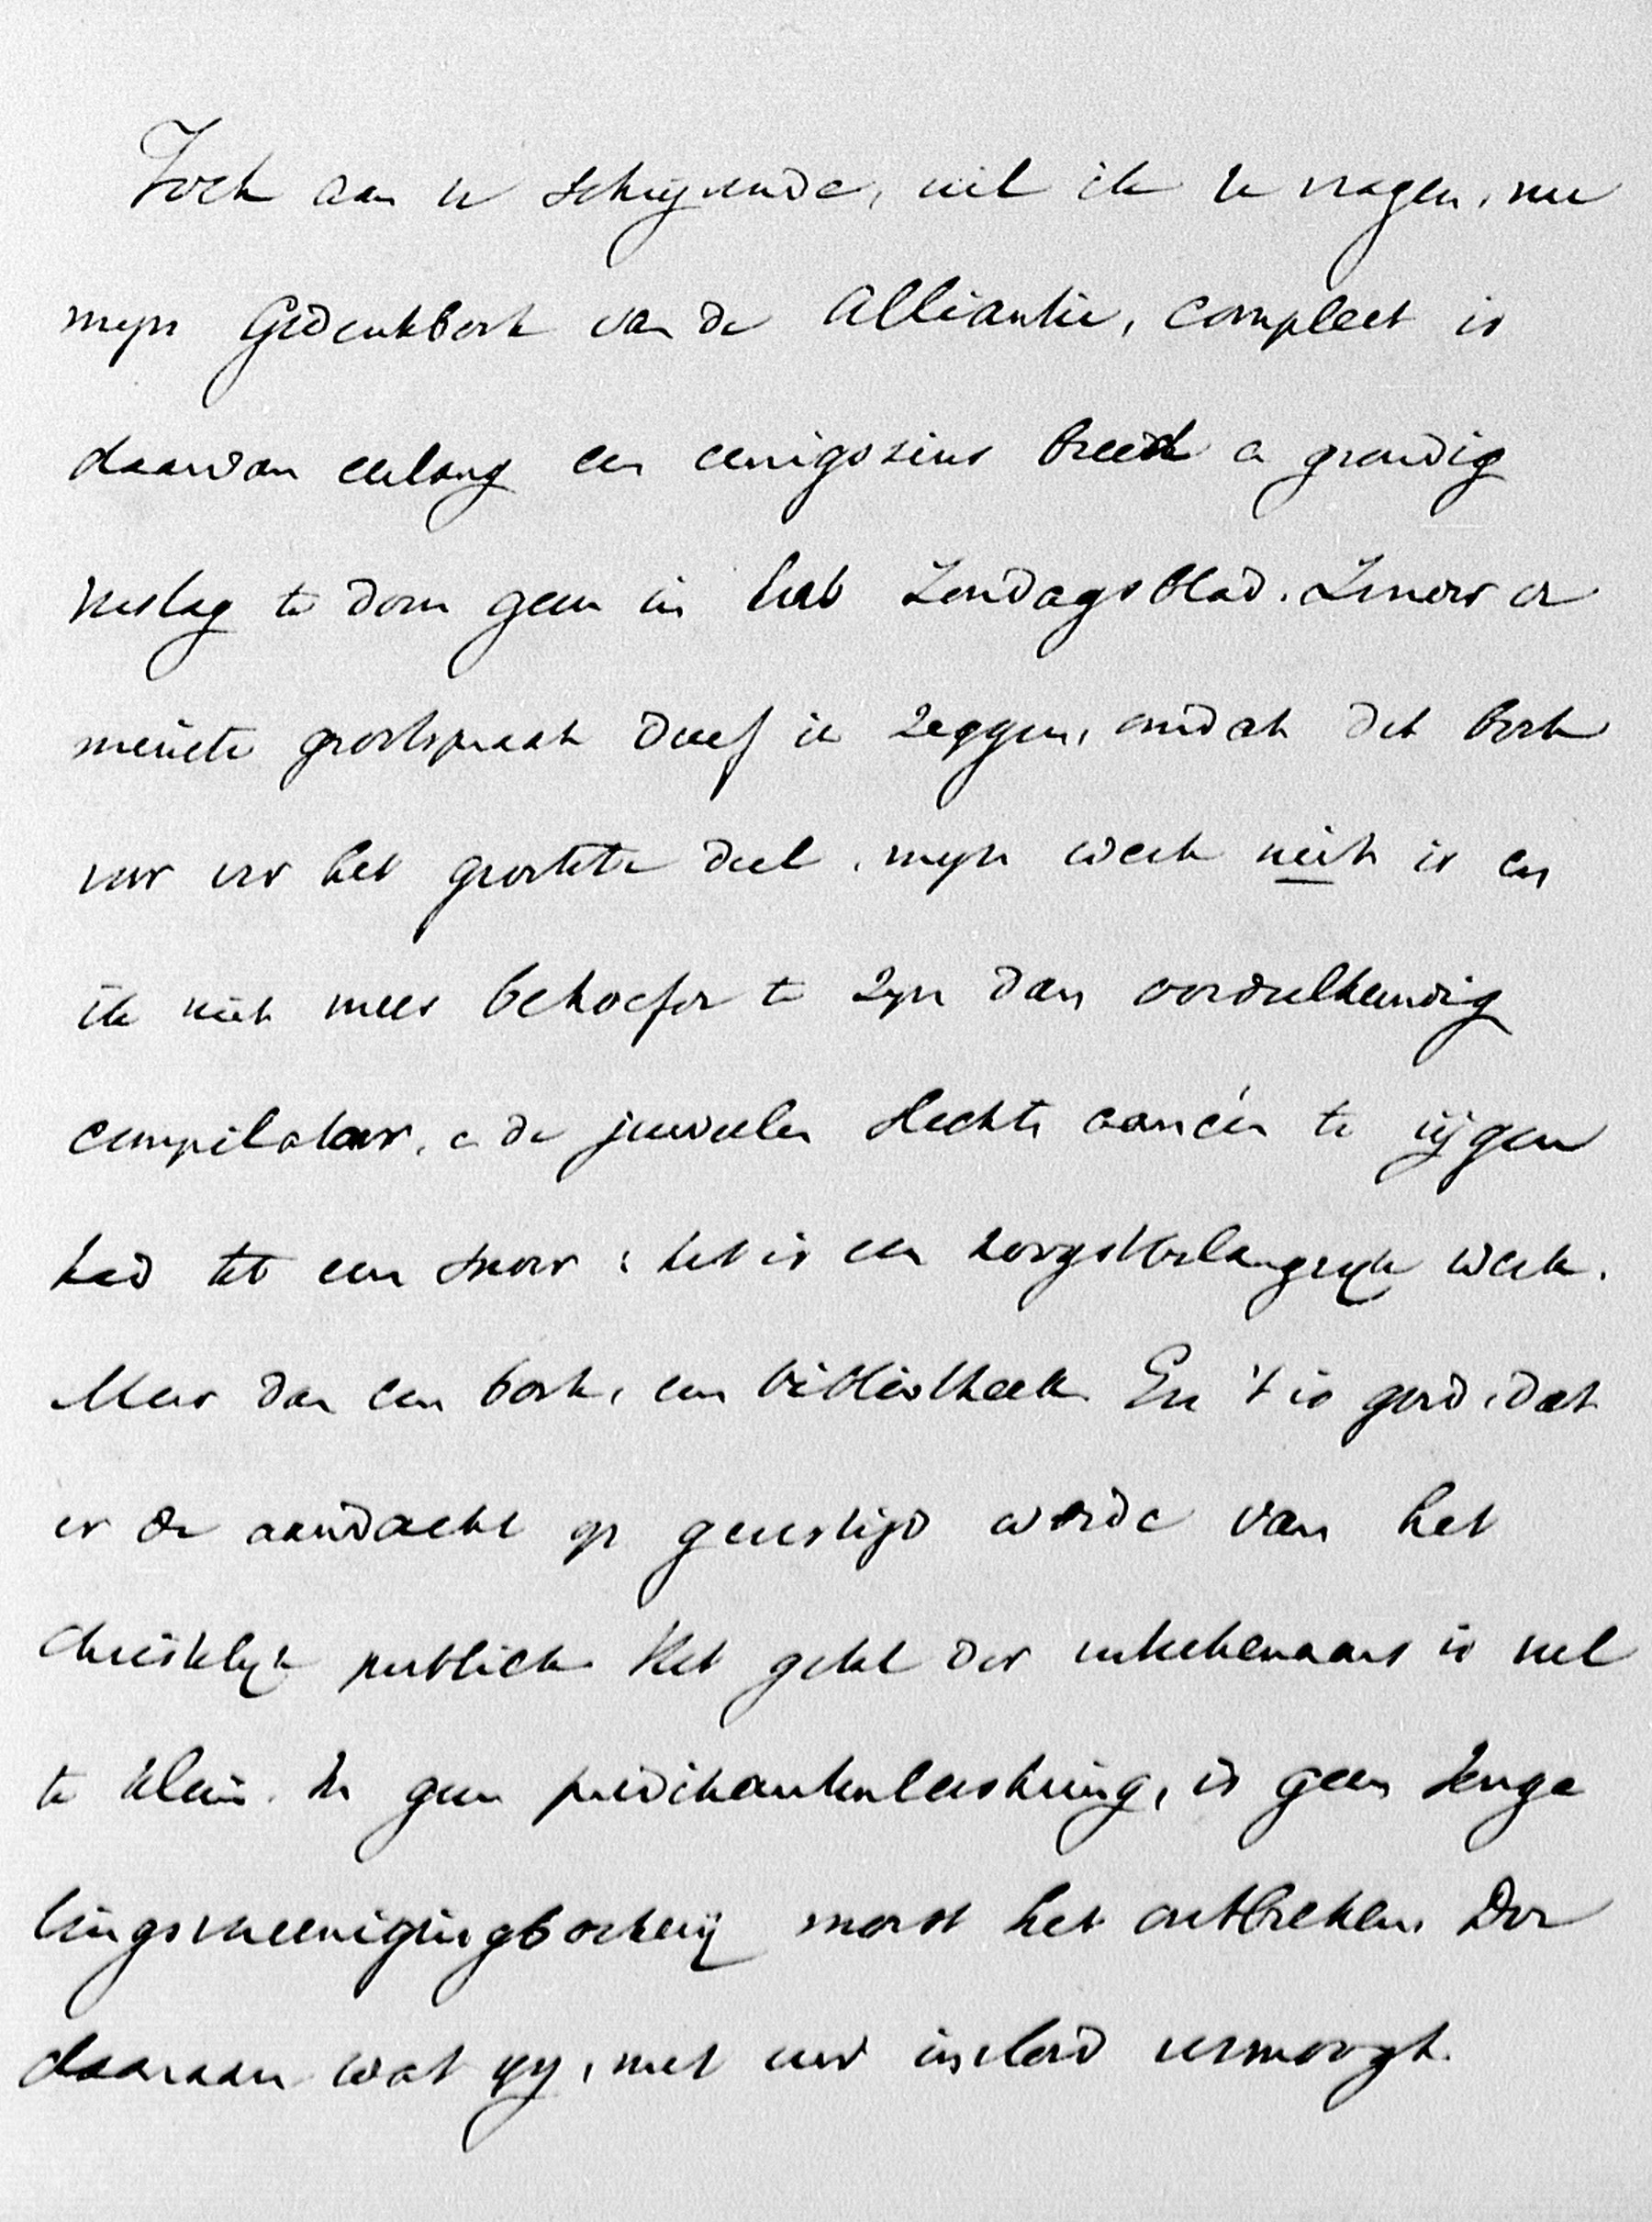 Toch aan u schrijvende, wil ik u vragen, nu
mijn Gedenkboek van de Alliantie, compleet is
daarvan eerlang een eenigszins breed en grondig
verslag te doen geven in het Zondagsblad. Zonder de
minste grootspraak durf ik zeggen, omdat dit boek
voor ver het grootste deel, mijn werk niet is en
ik niet meer behoefde te zijn dan oordeelkundig
compilator, en de juweelen slechts aaneen te rijgen
had tot een snoer: het is een hoogstbelangrijk werk.
Meer dan een boek, een bibliotheek. En 't is goed, dat
er de aandacht op gevestigd worde van het
christelijk publiek. Het getal der inteekenaars is veel
te klein. In geen predikantenleeskring, in geen Jonge
lingsvereenigingboekerij moest het ontbreken. Doe
daaraan wat gij, met uw invloed vermoogt.